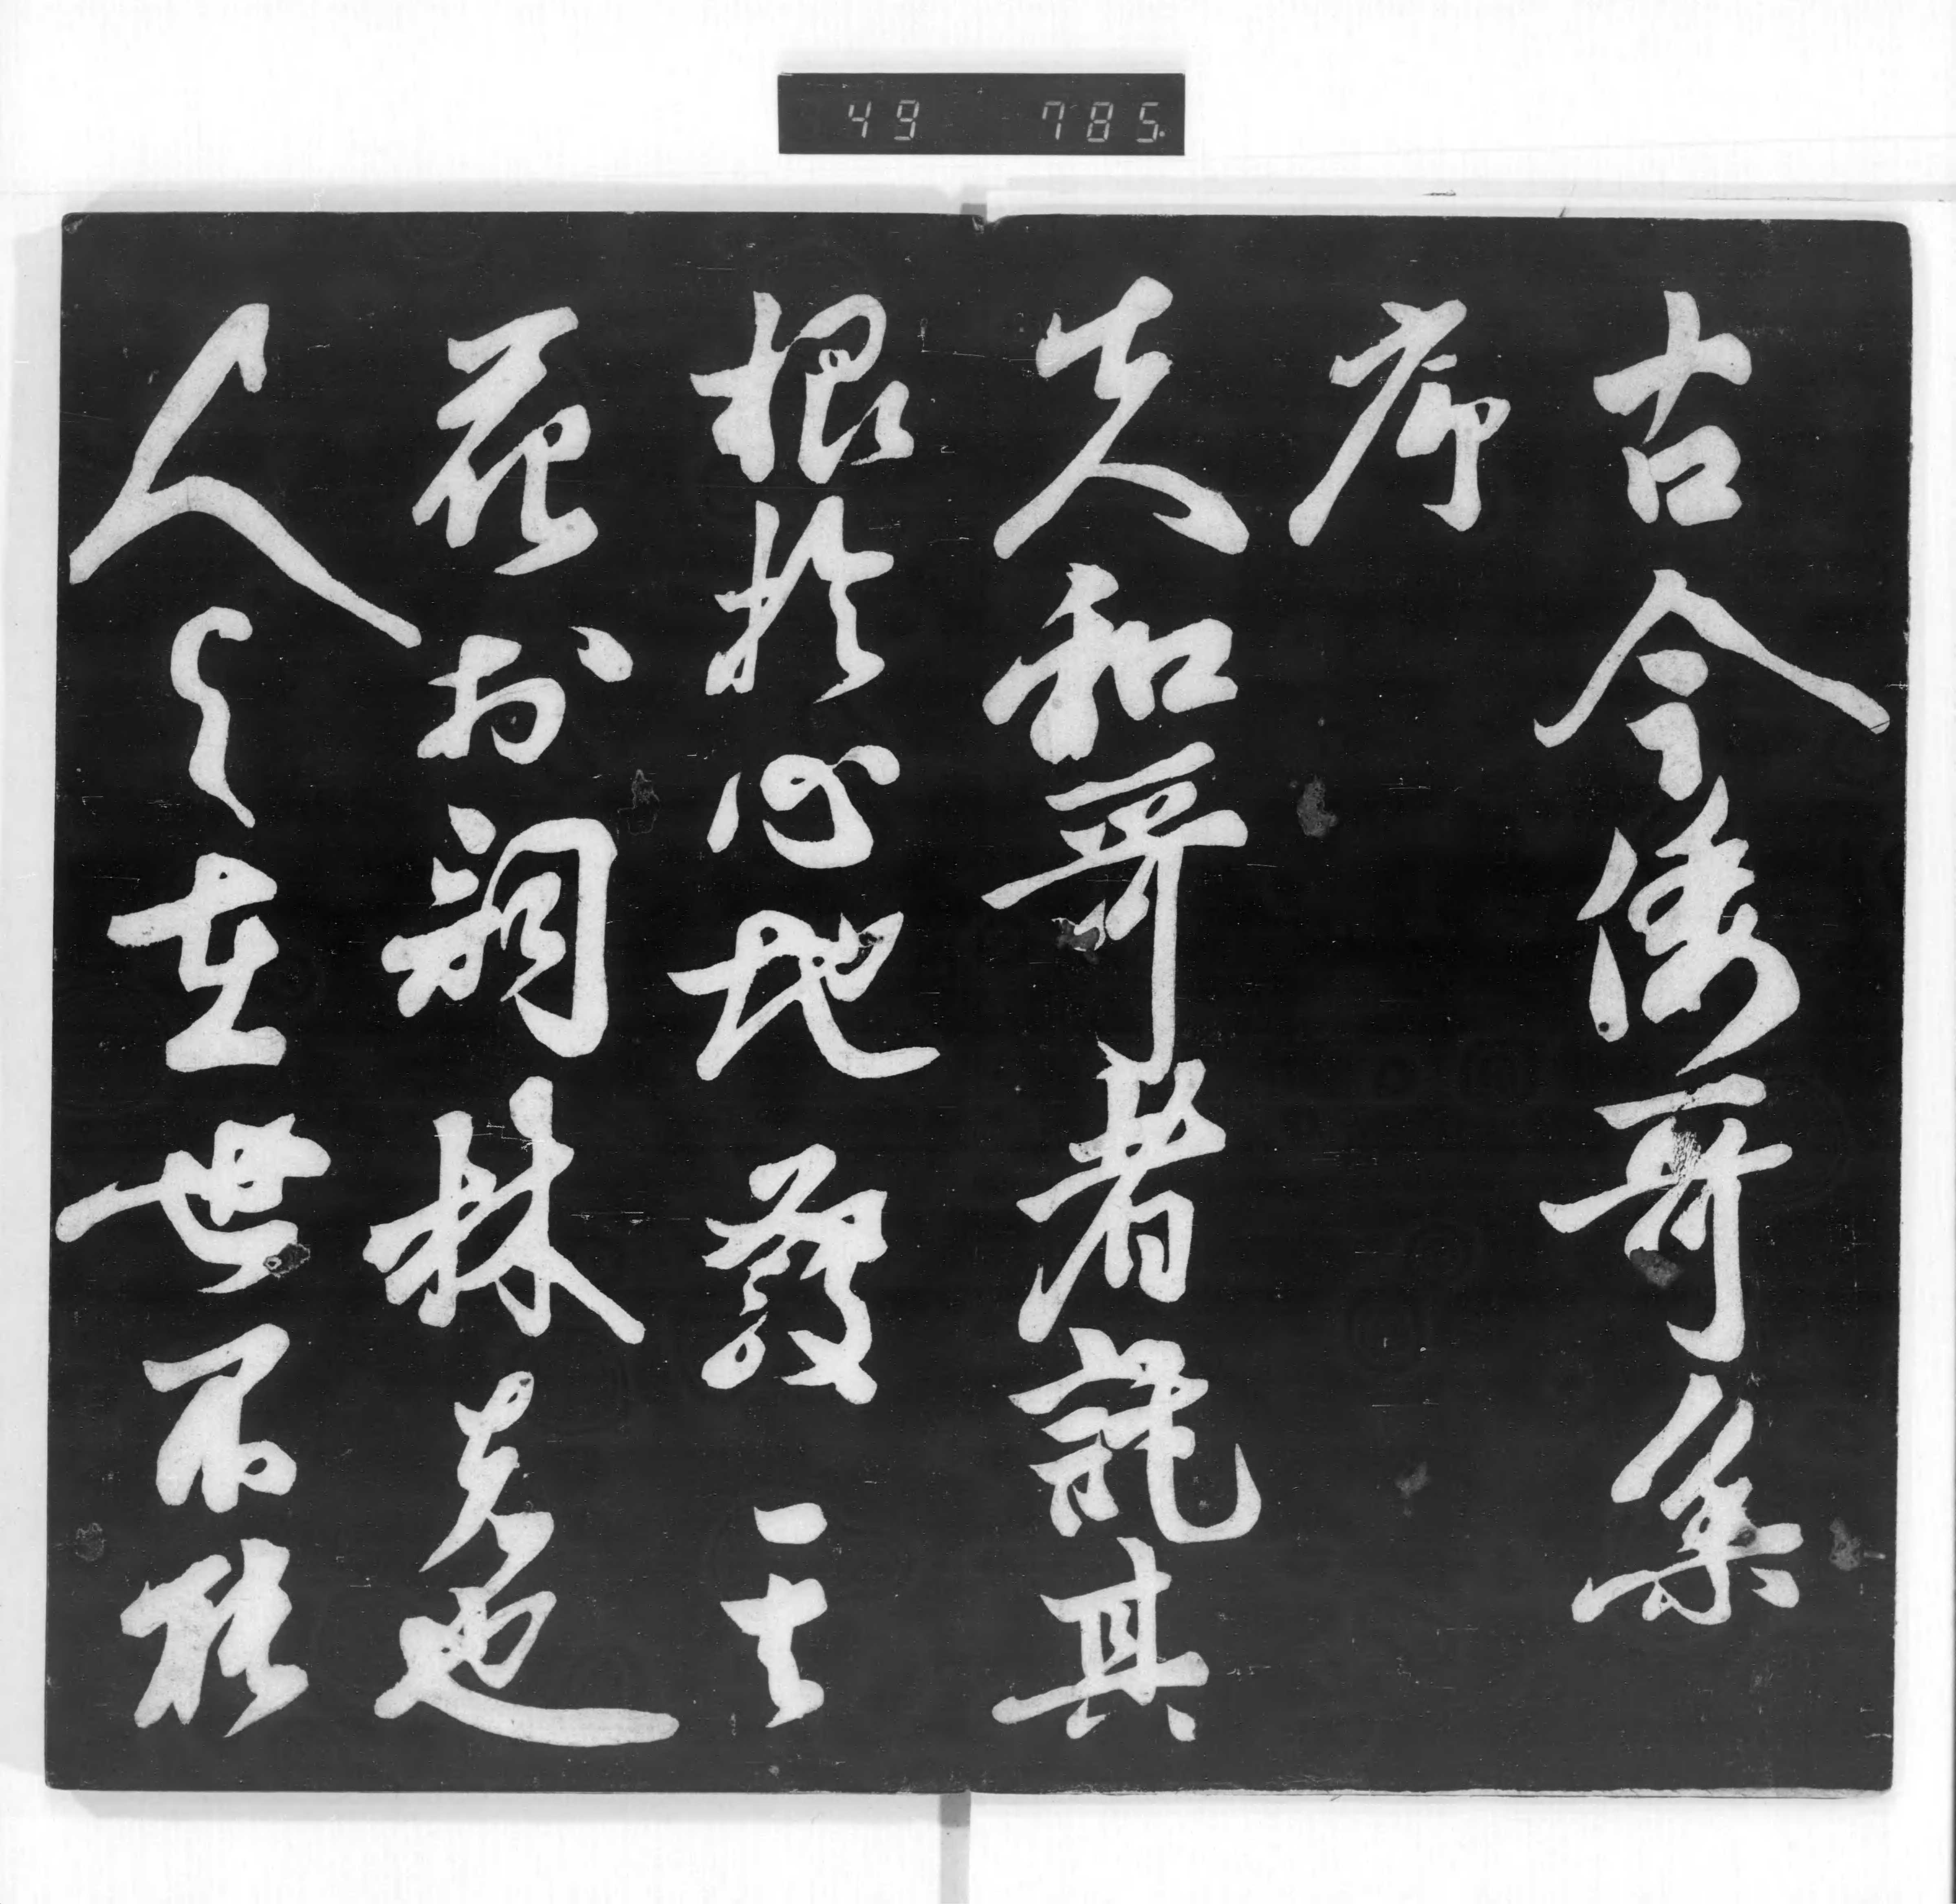 49 785
古今倭哥集
序
夫和哥者託其
根於心地發其
花於詞林者也
人之在世不能